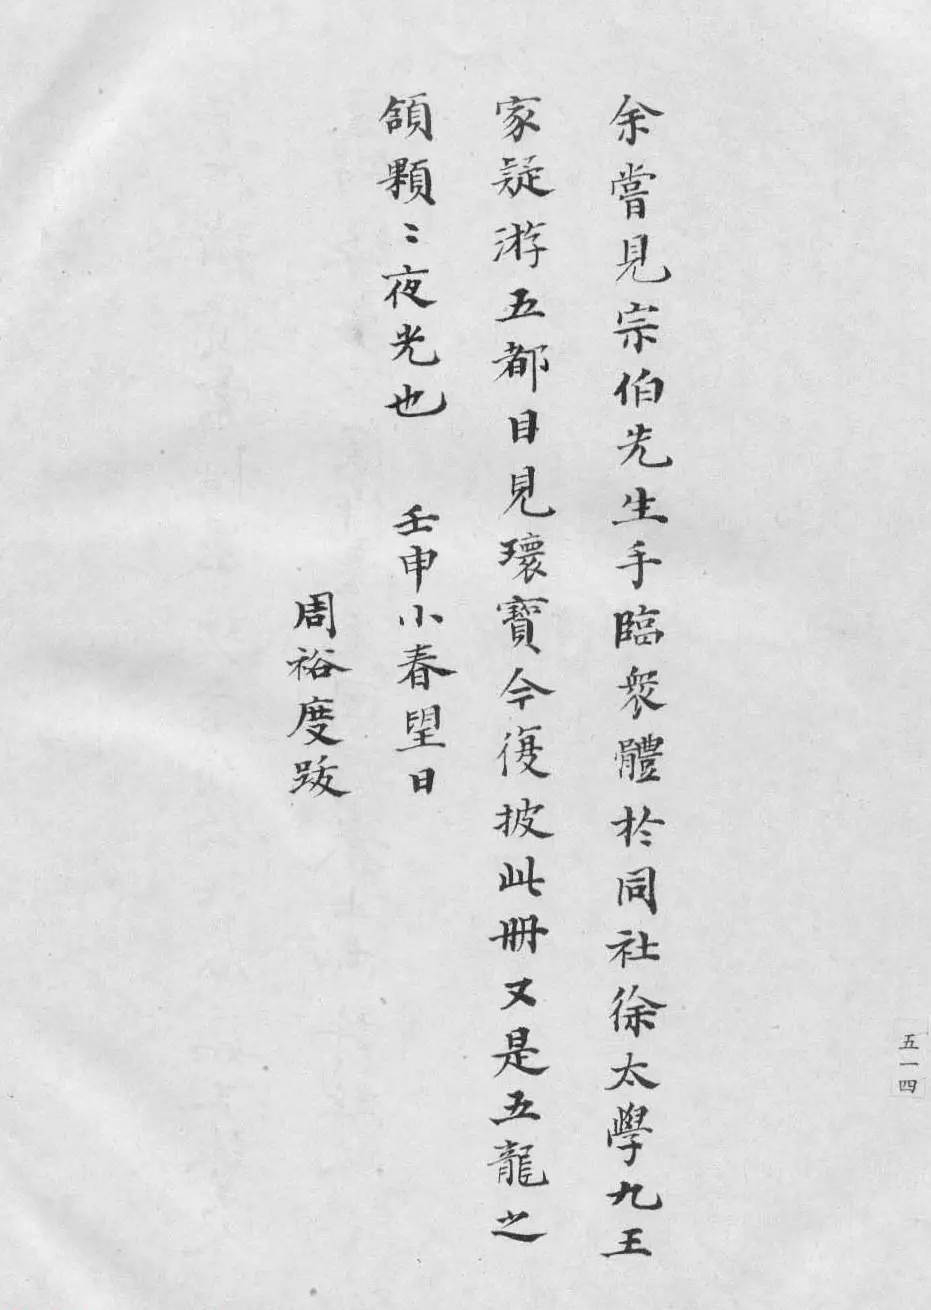 余嘗見宗伯先生手臨衆體於同社徐太學九王
家疑游五都目見瓌寶今復披此冊又是五龍之
頷顆〻夜光也 壬申小春望日
周裕度跋
五一四